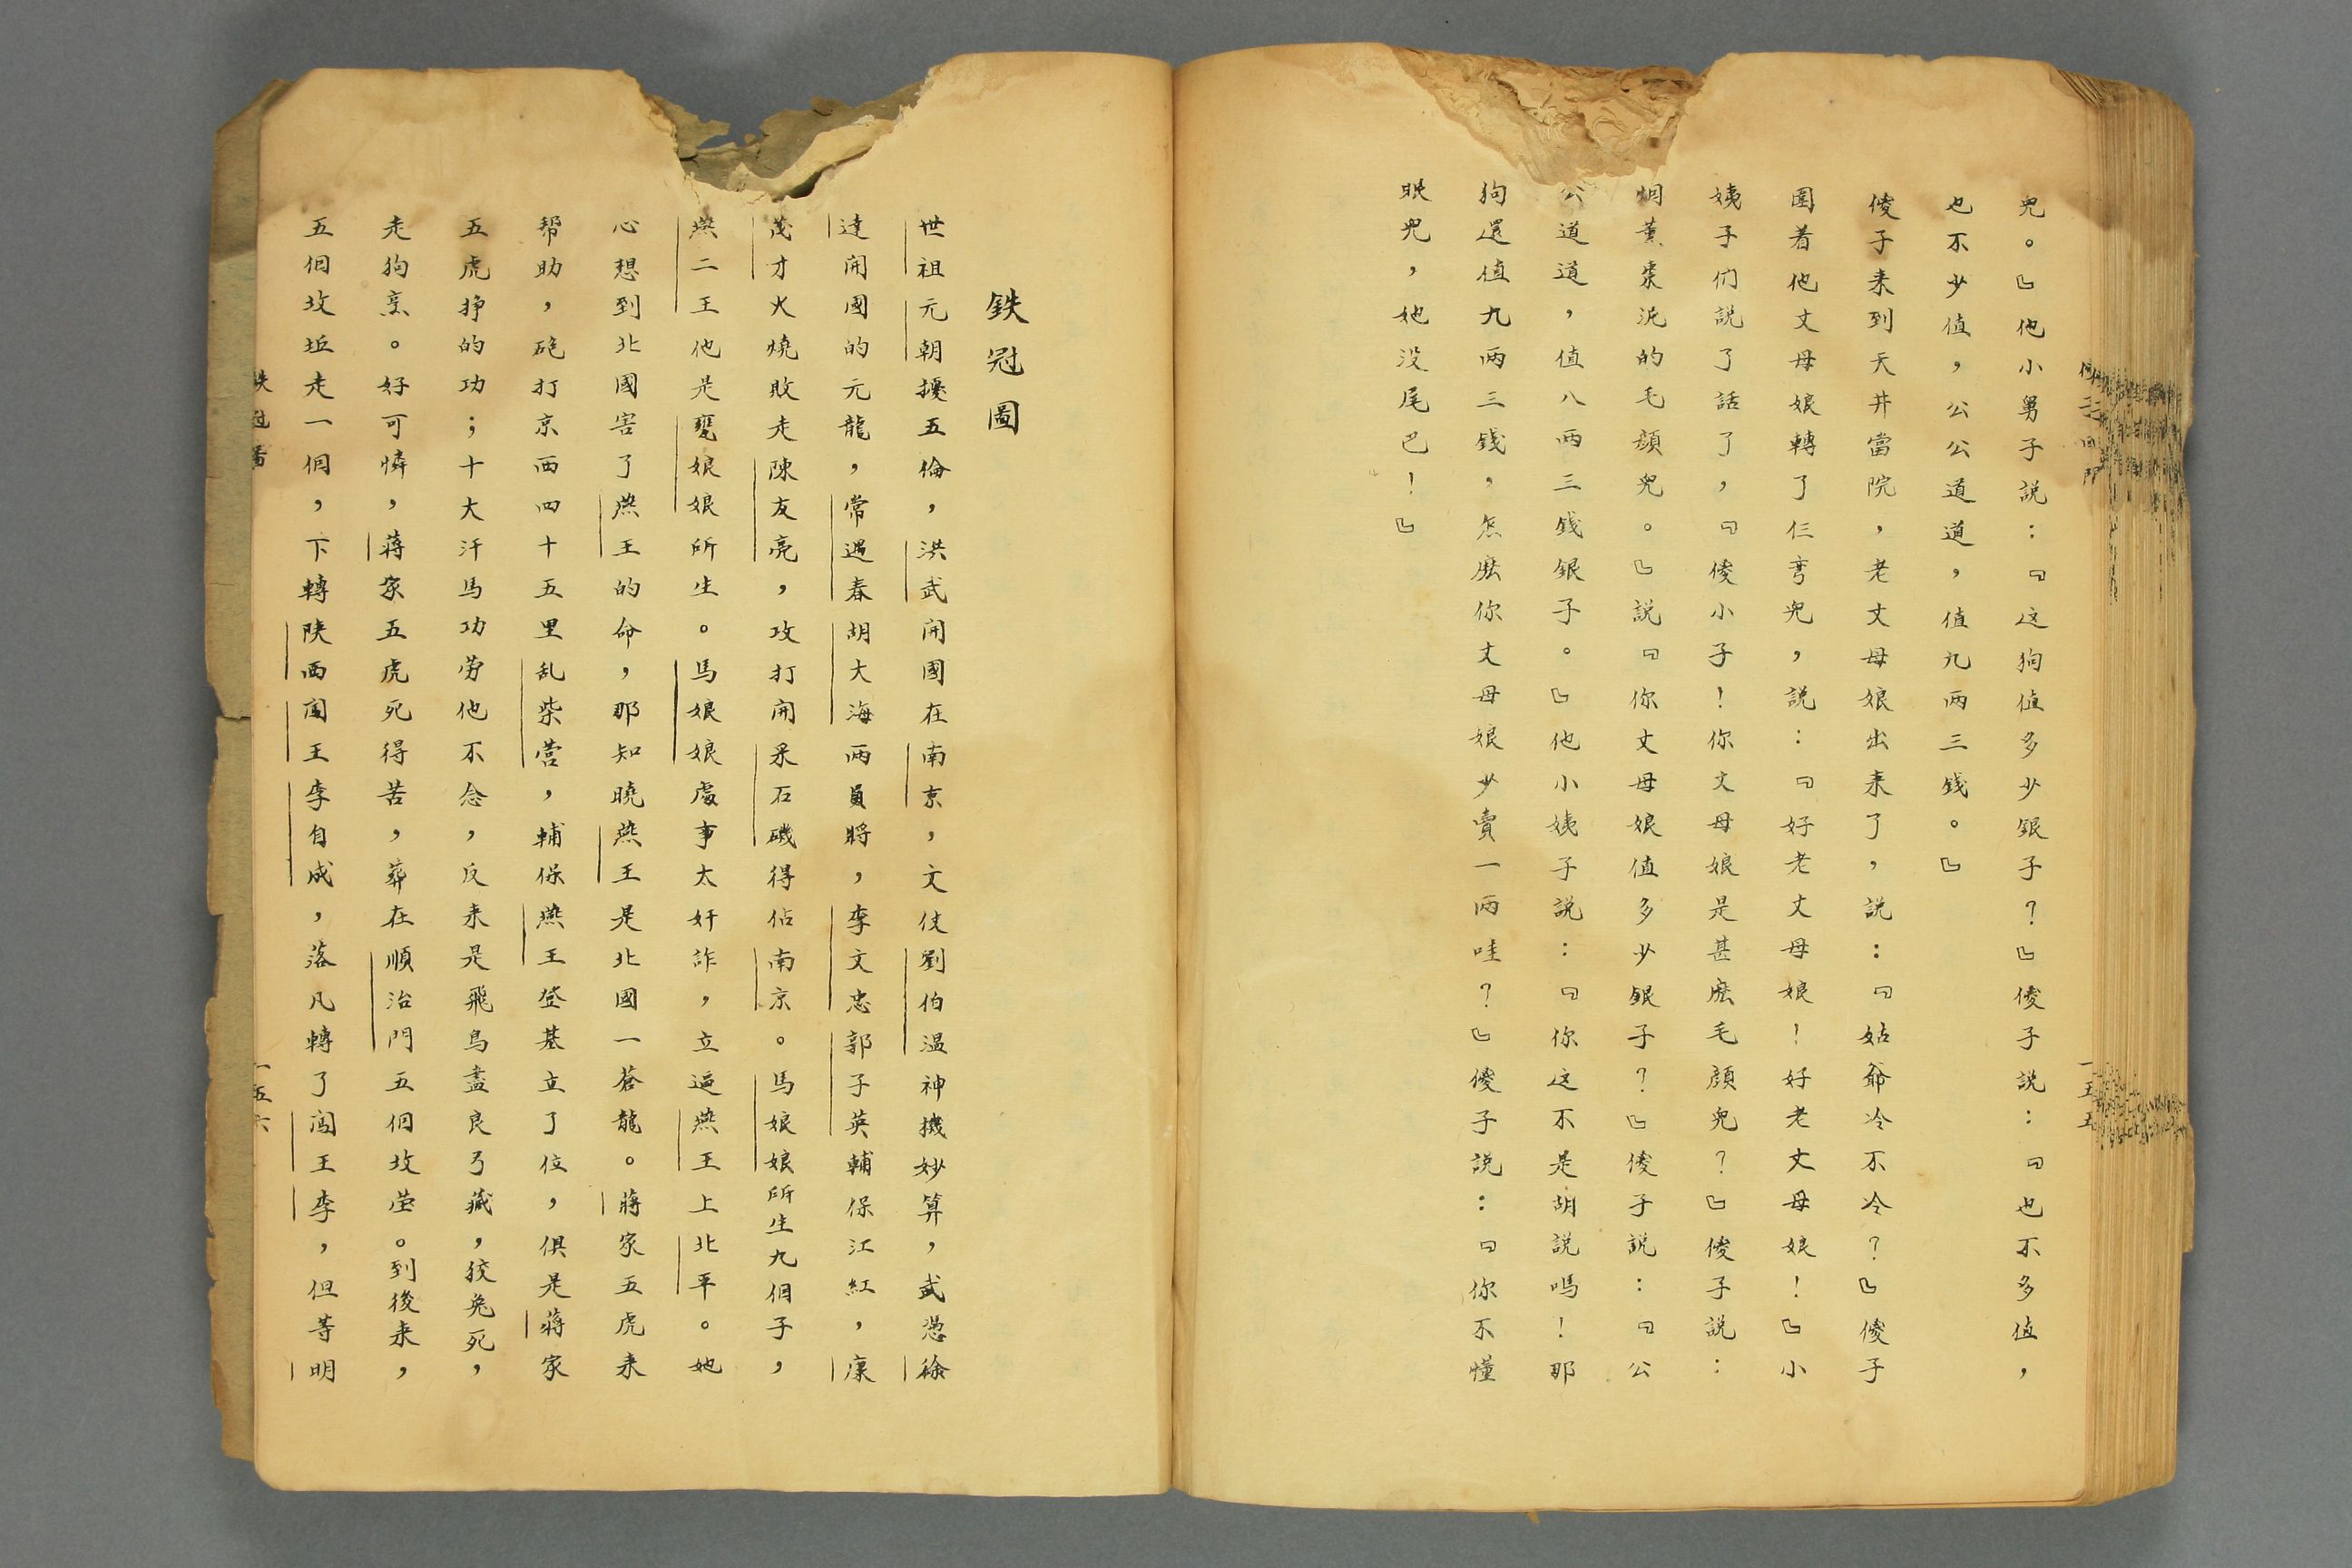 兒。』他小舅子説：『这狗值多少銀子？』傻子説：『也不多值，
也不少值，公公道道，值九两三錢。』
傻子来到天井當院，老丈母娘出来了，説：『姑爺冷不冷？』傻子
圍着他丈母娘轉了仨弯兒，説：『好老丈母娘！好老丈母娘！』小
姨子们説了話了，『傻小子！你丈母娘是甚麽毛顔兒？』傻子説：
烟薰棗泥的毛顔兒。』説『你丈母娘值多少銀子？』傻子説：『公
公道道，值八两三錢銀子。』他小姨子説：『你这不是胡説嗎！那
狗還值九两三錢，怎麽你丈母娘少賣一两哇？』傻子説：『你不懂
眼兒，她没尾巴！』
一五五
鉄冠圖
世祖元朝擾五倫，洪武開國在南京，文仗劉伯温神機妙算，武憑徐
達開國的元龍，常遇春胡大海两員將，李文忠郭子英輔保江紅，康
茂才火燒敗走陳友亮，攻打開采石磯得佔南京。馬娘娘所生九個子，
燕二王他是甕娘娘所生。馬娘娘處事太奸詐，立逼燕王上北平。她
心想到北國害了燕王的命，那知曉燕王是北國一蒼龍。蔣家五虎来
帮助，砲打京西四十五里乱柴营，輔保燕王登基立了位，俱是蔣家
五虎挣的功；十大汗馬功劳他不念，反来是飛鳥盡良弓藏，狡兔死，
走狗烹。好可憐，蔣家五虎死得苦，葬在順治門五個坟茔。到後来，
五個坟坵走一個，下轉陕西闯王李自成，落凡轉了闯王李，但等明
鉄冠圖
一五六